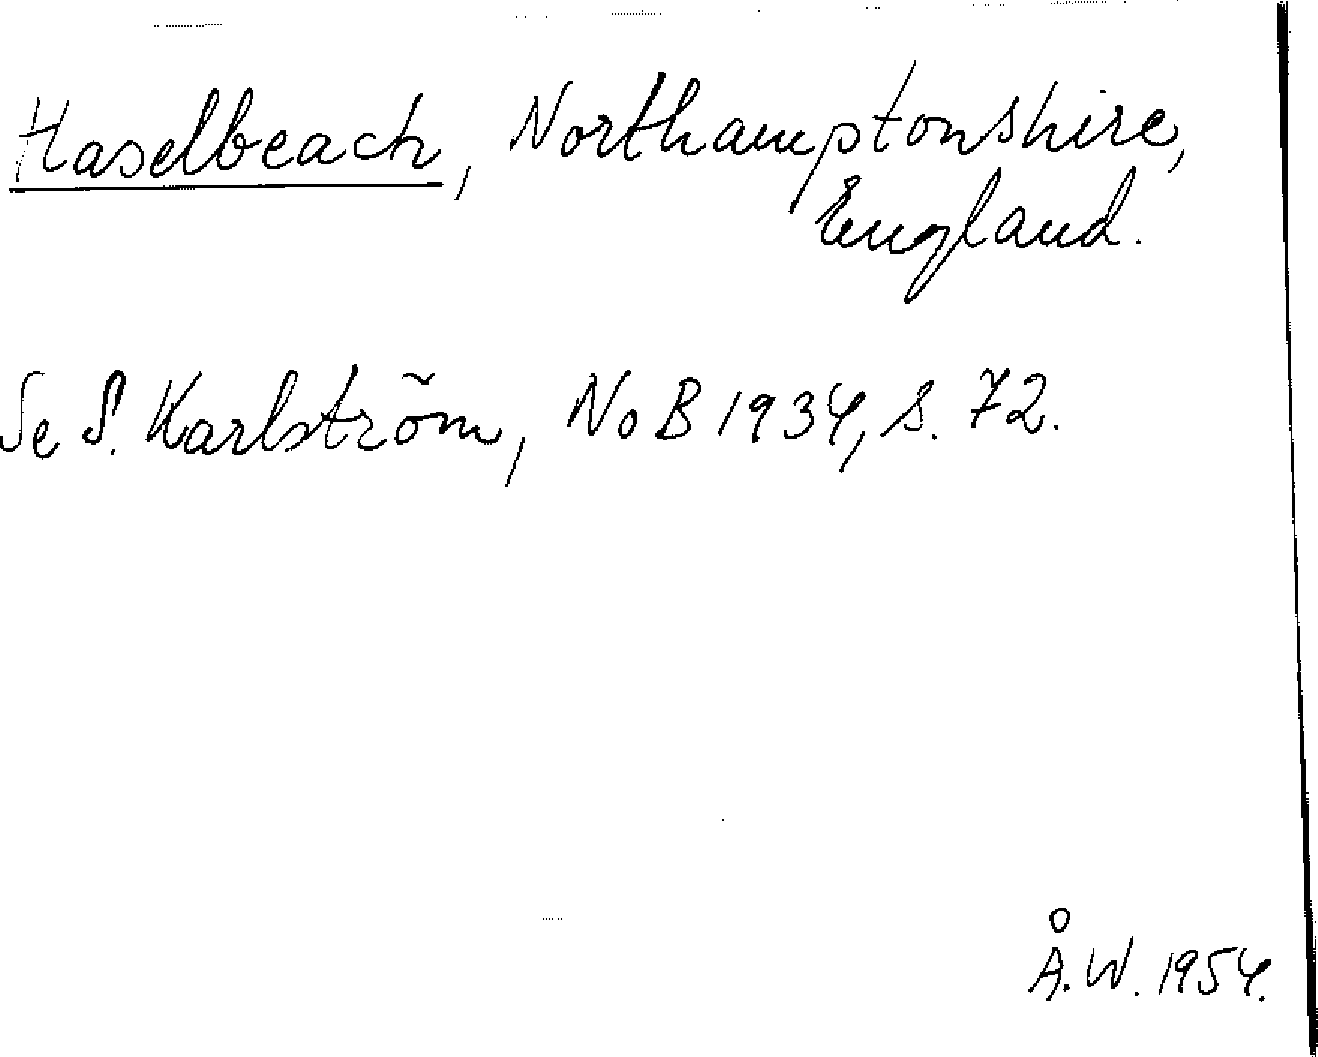 Haselbeach, Northamptonshire,
England.
Se S. Karlström, NoB 1934, s. 72.
Å.W. 1954.